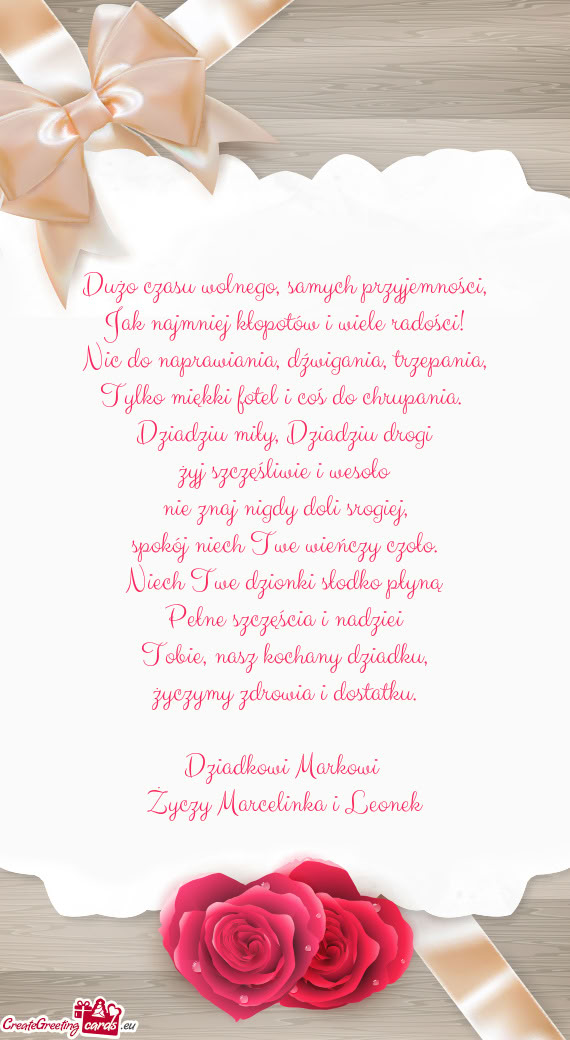 Dużo czasu wolnego, samych przyjemności,
Jak najmniej kłopotów i wiele radości!
Nic do naprawiania, dźwigania, trzepania,
Tylko miękki fotel i coś do chrupania.
Dziadziu miły, Dziadziu drogi
żyj szczęśliwie i wesoło
nie znaj nigdy doli srogiej,
spokój niech Twe wieńczy czoło.
Niech Twe dzionki słodko płyną
Pełne szczęścia i nadziei
Tobie, nasz kochany dziadku,
życzymy zdrowia i dostatku.
Dziadkowi Markowi
Życzy Marcelinka i Leonek
CreateGreeting cards .eu